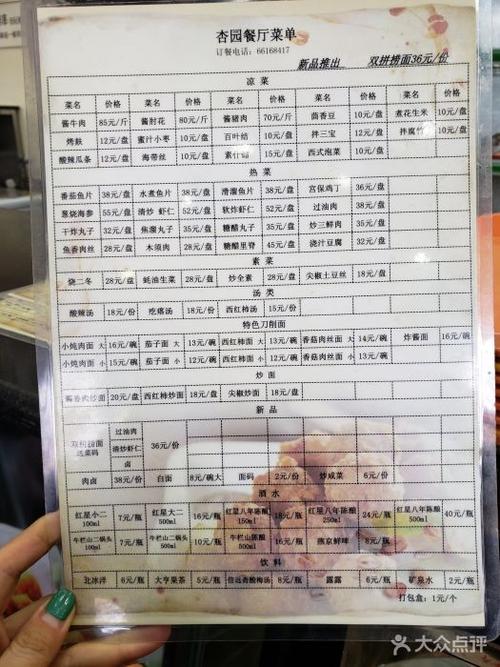 杏园餐厅菜单
订餐电话：66168417
新品推出 双拼捞面36元/份
凉菜
菜名 价格 菜名 价格 菜名 价格 菜名 价格 菜名 价格
酱牛肉 85元/斤 酱肘花 80元/斤 酱猪肉 70元/斤 茴香豆 10元/盘 煮花生米 10元/盘
烤麸 12元/盘 蜜汁小枣 10元/盘 百叶结 10元/盘 拌三宝 10元/盘 拌腐竹 10元/盘
酸辣瓜条 12元/盘 海带丝 10元/盘 素什锦 15元/盘 西式泡菜 10元/盘
热菜
番茄鱼片 38元/盘 水煮鱼片 38元/盘 滑溜鱼片 38元/盘 宫保鸡丁 36元/盘
葱烧海参 55元/盘 清炒虾仁 52元/盘 软炸虾仁 52元/盘 过油肉 38元/盘
干炸丸子 32元/盘 焦溜丸子 35元/盘 糖醋肉 35元/盘 炒三鲜肉 35元/盘
鱼香肉丝 28元/盘 木须肉 28元/盘 糖醋里脊 45元/盘 浇汁豆腐 32元/盘
素菜
烧二冬 28元/盘 蚝油生菜 28元/盘 炒全素 28元/盘 尖椒土豆丝 18元/盘
汤类
酸辣汤 18元/份 疙瘩汤 18元/份 西红柿汤 15元/份
特色刀削面
小炖肉面 大 16元/碗 茄子面 大 13元/碗 西红柿面 大 13元/碗 香菇肉丝面 大 14元/碗 炸酱面 16元/碗
小炖肉面 小 15元/碗 茄子面 小 12元/碗 西红柿面 小 12元/碗 香菇肉丝面 小 13元/碗
炒面
酱香肉炒面 20元/盘 西红柿炒面 18元/盘 尖椒炒面 18元/盘
新品
双拼捞面 过油肉 36元/份
选菜码 清炒虾仁
卤
肉卤 38元/份 白面 8元/碗大 面码 2元/份 炒咸菜 6元/份
酒水
红星小二 100ml 7元/瓶 红星大二 500ml 16元/瓶 红星八年陈酿 150ml 18元/瓶 红星八年陈酿 250ml 24元/瓶 红星八年陈酿 500ml 40元/瓶
牛栏山二锅头 100ml 7元/瓶 牛栏山二锅头 500ml 10元/瓶 牛栏山陈酿 500ml 16元/瓶 燕京鲜啤 8元/瓶
饮料
北冰洋 6元/瓶 大亨果茶 5元/瓶 信远斋酸梅汤 8元/瓶 露露 6元/瓶 矿泉水 2元/瓶
打包盒：1元/个
大众点评